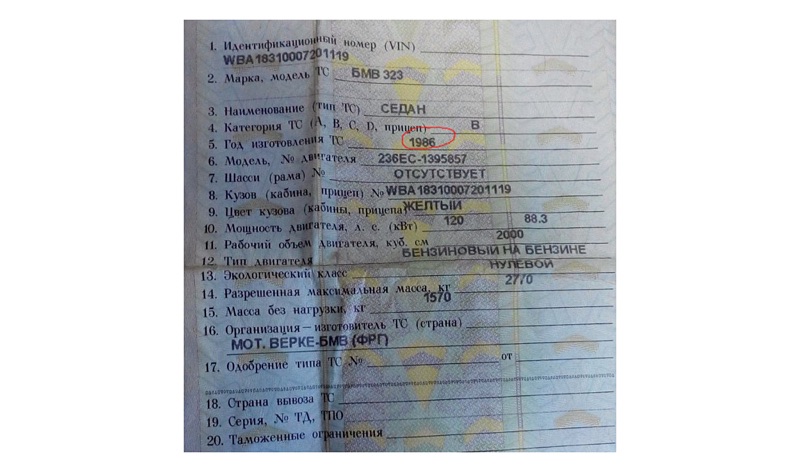 1. Идентификационный номер (VIN)
WBA18310007201119
2. Марка, модель ТС БМВ 323
3. Наименование (тип ТС) СЕДАН
4. Категория ТС (А, В, С, D, прицеп) В
5. Год изготовления ТС 1986
6. Модель, № двигателя 236EC-1395857
7. Шасси (рама) № ОТСУТСТВУЕТ
8. Кузов (кабина, прицеп) № WBA18310007201119
9. Цвет кузова (кабины, прицепа) ЖЕЛТЫЙ
10. Мощность двигателя, л. с. (кВт) 120 88.3
11. Рабочий объем двигателя, куб. см 2000
12. Тип двигателя БЕНЗИНОВЫЙ НА БЕНЗИНЕ
13. Экологический класс НУЛЕВОЙ
14. Разрешенная максимальная масса, кг 2770
15. Масса без нагрузки, кг 1570
16. Организация–изготовитель ТС (страна)
МОТ. ВЕРКЕ-БМВ (ФРГ)
17. Одобрение типа ТС № от
18. Страна вывоза ТС
19. Серия, № ТД, ТПО
20. Таможенные ограничения